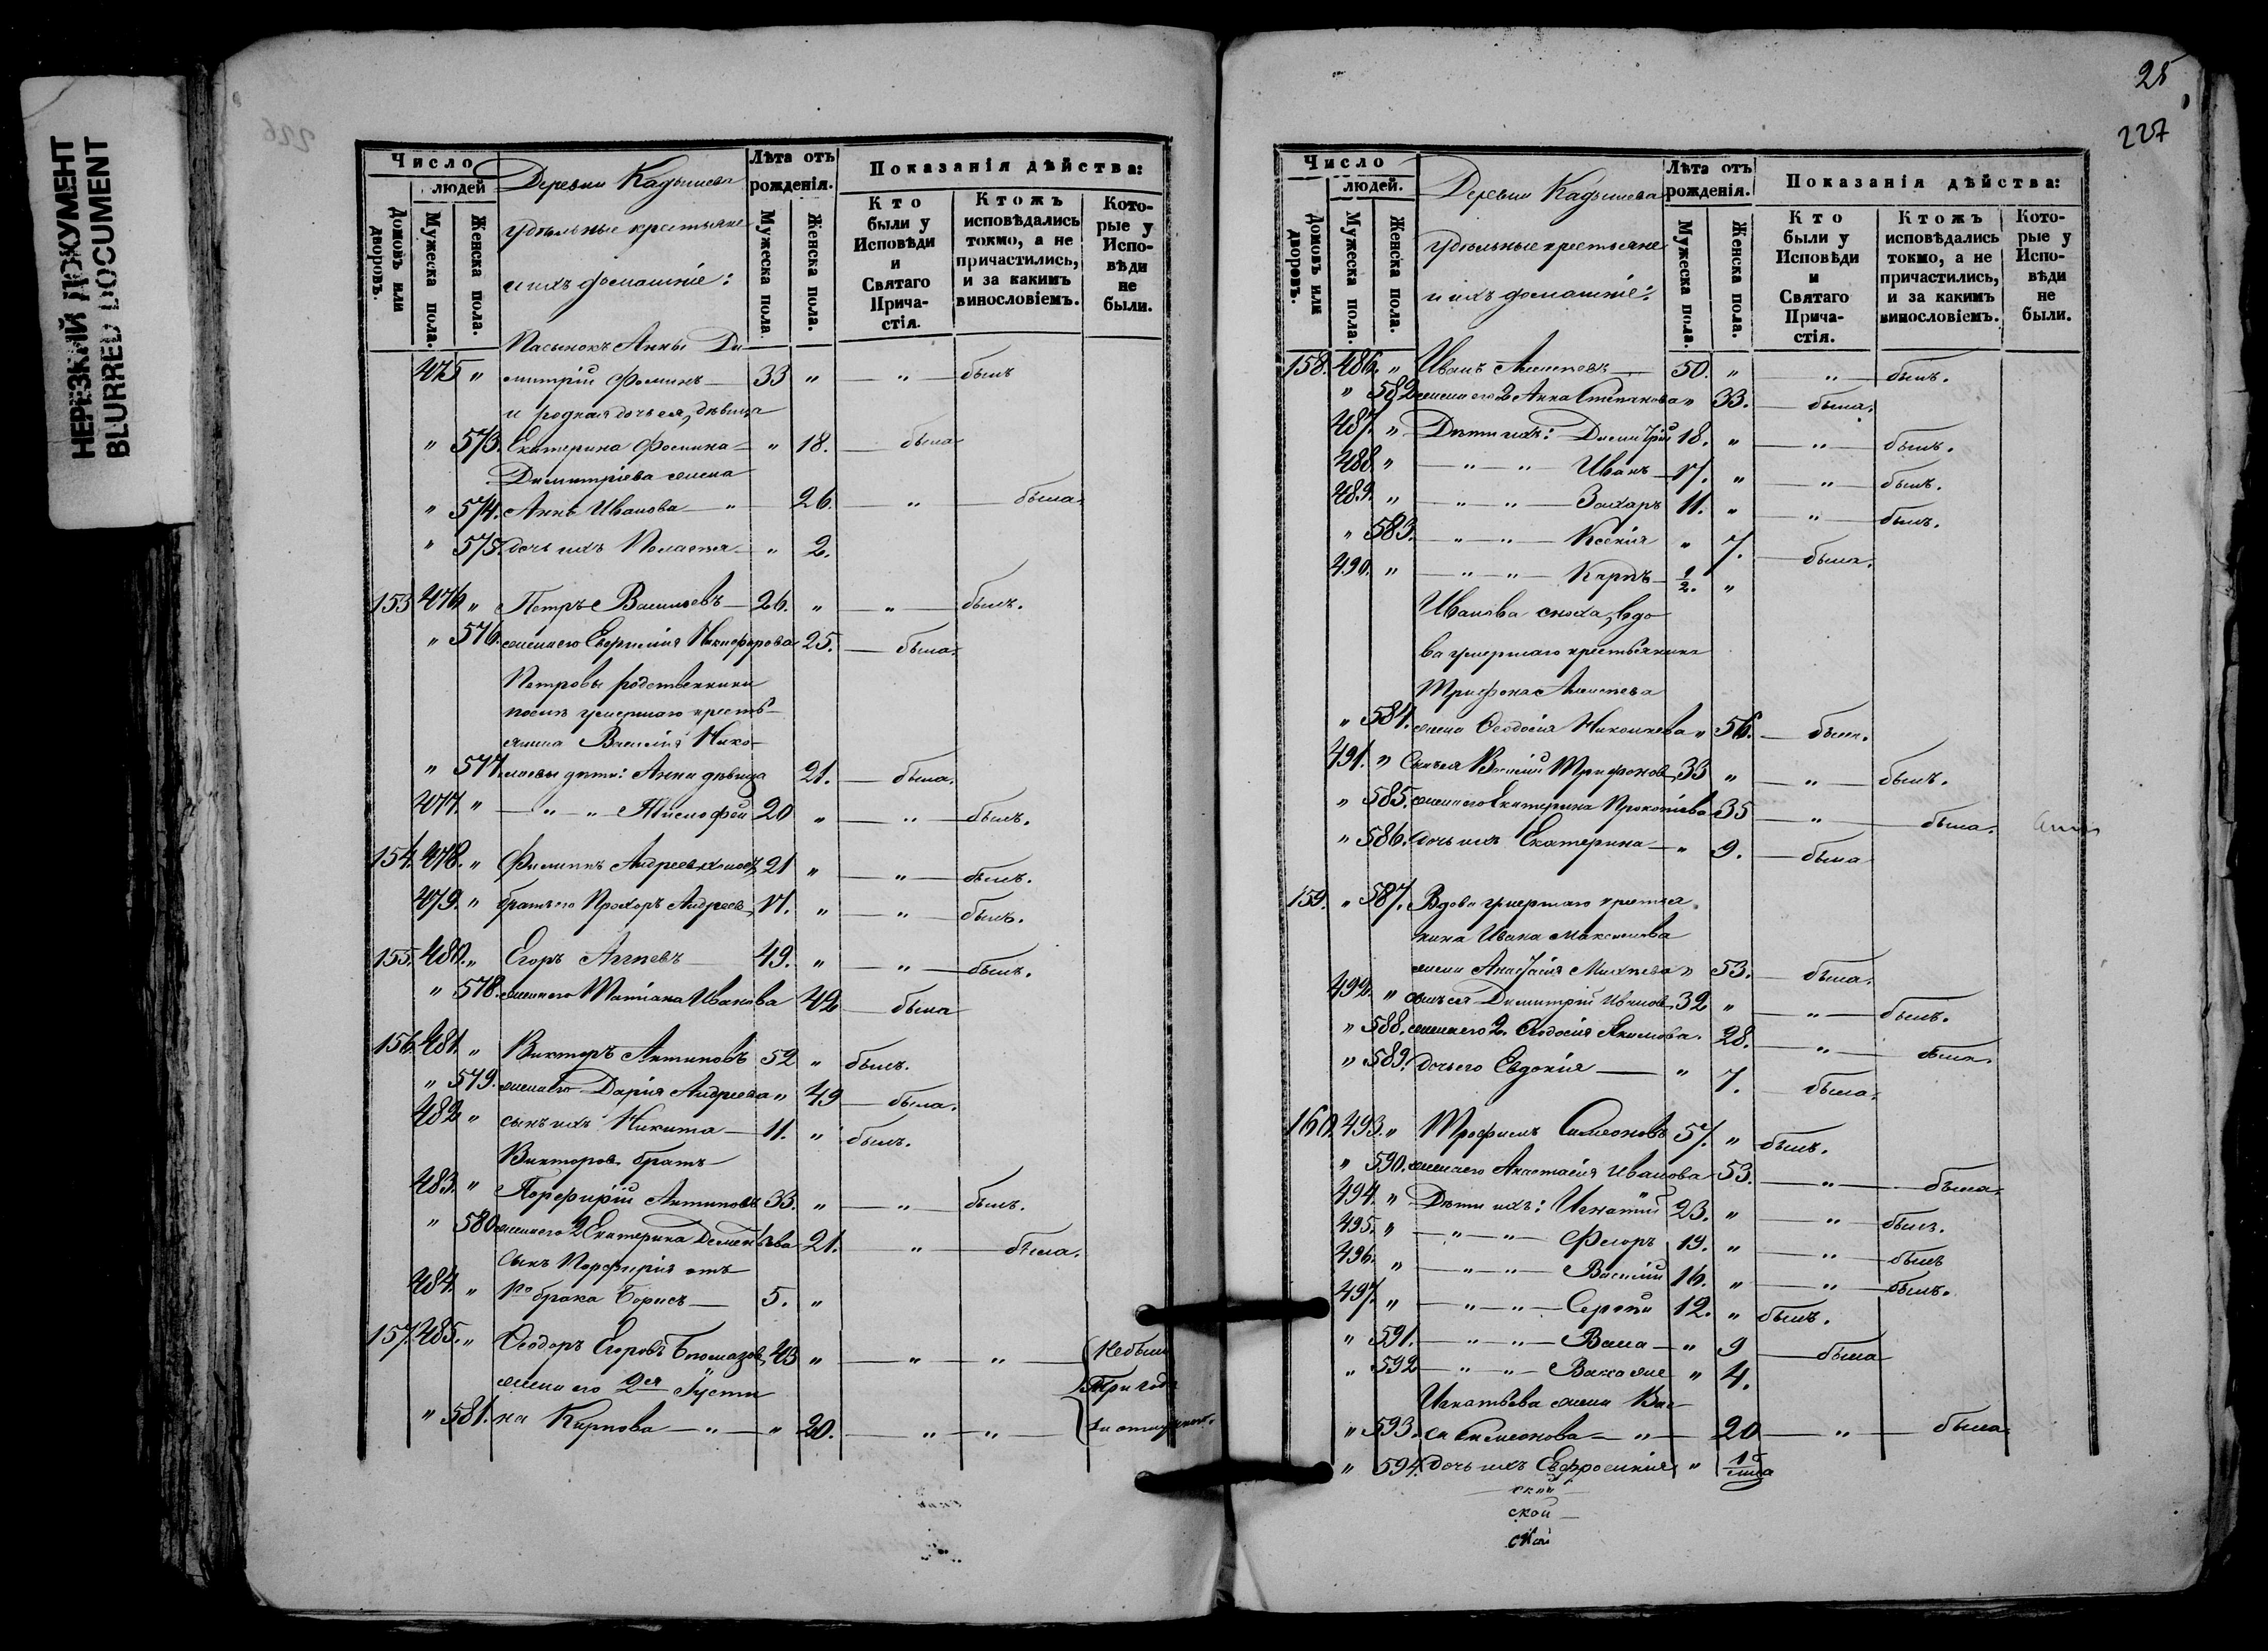 НЕРЕЗКИЙ ДОКУМЕНТ
BLURRED DOCUMENT
226
Число
людей
Домовъ или дворовъ.
Мужеска пола.
Женска пола.
Деревни Кадышева
удѣльные крестьяне
и ихъ домашніе:
Лѣта отъ рожденія.
Мужеска пола
Женска пола.
Показанія дѣйства:
Кто были у Исповѣди и Святаго Прича-стія.
Ктожъ исповѣдались токмо, а не причастились, и за какимъ винословіемъ.
Кото-рые у Испо-вѣди не были.
Пасынокъ Анны Ди-
475 " митрій Фоминъ — 33 " — " — былъ
и родная дочь ея, дѣвица
" 573. Екатерина Фомина — " 18. — была
Димитріева жена
" 574. Анна Иванова — " 26. — " — была.
" 575. дочь ихъ Пелагея — " 2.
153 476. " Петръ Васильевъ — 26. " — " — былъ.
" 576. жена его Евфимія Никифорова 25. — была.
Петровы родственники
послѣ умершаго кресть-
янина Василія Нико-
" 577. лаевы дѣти: Анна дѣвица 21. — была.
477. " — " — " — Тимофей 20 " — " — былъ.
154. 478. " Филиппъ Андреевъ холостъ 21 " — " — былъ.
479. " братъ его Прохоръ Андреевъ 17. " — " — былъ.
155. 480. " Егоръ Агѣевъ 49. " — " — былъ.
" 578. жена его Татіана Иванова 42 — была
156. 481. " Викторъ Антиповъ 52 " былъ.
" 579. жена его Дарія Андреева " 49 — была.
482 " сынъ ихъ Никита — 11. " былъ.
Викторовъ братъ
483. " Порфирій Антиповъ 33. " — " — былъ.
" 580 жена его 2 Екатерина Дементьева 21. " — была.
Сынъ Порфирія отъ
484. " 1го брака Борисъ — 5. "
157. 485. " Ѳеодоръ Егоровъ Богомазовъ 43 " — " — " — Не были
жена его 2ая Густи Три года
" 581. на Карпова — " — " 20. — " — " — въ отлучкѣ.
28
227
Число
людей.
Домовъ или дворовъ.
Мужеска пола.
Женска пола.
Деревни Кадышева
удѣльные крестьяне
и ихъ домашніе:
Лѣта отъ рожденія.
Мужеска пола.
Женска пола.
Показанія дѣйства:
Кто были у Исповѣди и Святаго Прича-стія.
Ктожъ исповѣдались токмо, а не причастились, и за какимъ винословіемъ.
Кото-рые у Испо-вѣди не были.
158. 486. " Иванъ Алексѣевъ — 50. " — " — былъ.
" 582 жена его 2 Анна Степанова " 33. — была.
487. " Дѣти ихъ: Димитрій 18. " — " — былъ.
488 " — " — " — Иванъ — 17. " — " — былъ.
489. " — " — " — Захаръ 11. " — " — былъ.
" 583. — " — " — Ксенія " 7. — была.
490. " — " — " — Карпъ — 1/2. "
Иванова сноха, вдо-
ва умершаго крестьянина
Трифона Алексѣева
" 584. жена Ѳеодосія Николаева " 56. — была.
491. " Сынъ ея Василій Трифоновъ 33 " — " — былъ.
" 585. жена его Екатерина Прокопіева 35 — " — была.
" 586. дочь ихъ Екатерина — " 9. — была
159. " 587. Вдова умершаго крестья-
нина Ивана Максимова
жена Анастасія Михѣева " 53. — была.
492. " сынъ ея Димитрій Ивановъ 32 " — " — былъ.
" 588. жена его 2. Ѳеодосія Акимова. 28. — " — была.
" 589. дочь его Евдокія — " 7. — была.
160. 493. " Трофимъ Симеоновъ 57. " былъ.
" 590. жена его Анастасія Иванова 53. — " — была.
494. " Дѣти ихъ: Игнатій 23. " — " — былъ.
495. " — " — " — Флоръ 19. " — " — былъ
496. " — " — " — Василій 16. " — " — былъ.
497. " — " — " — Сергѣй 12. " былъ.
" 591. — " — " — — " 9 — была
" 592 — " — " — " 4.
Игнатьева жена Вас-
" 593. са Симеонова — " — 20 — " — была.
" 594. дочь ихъ Евфросинія "
ской
ской